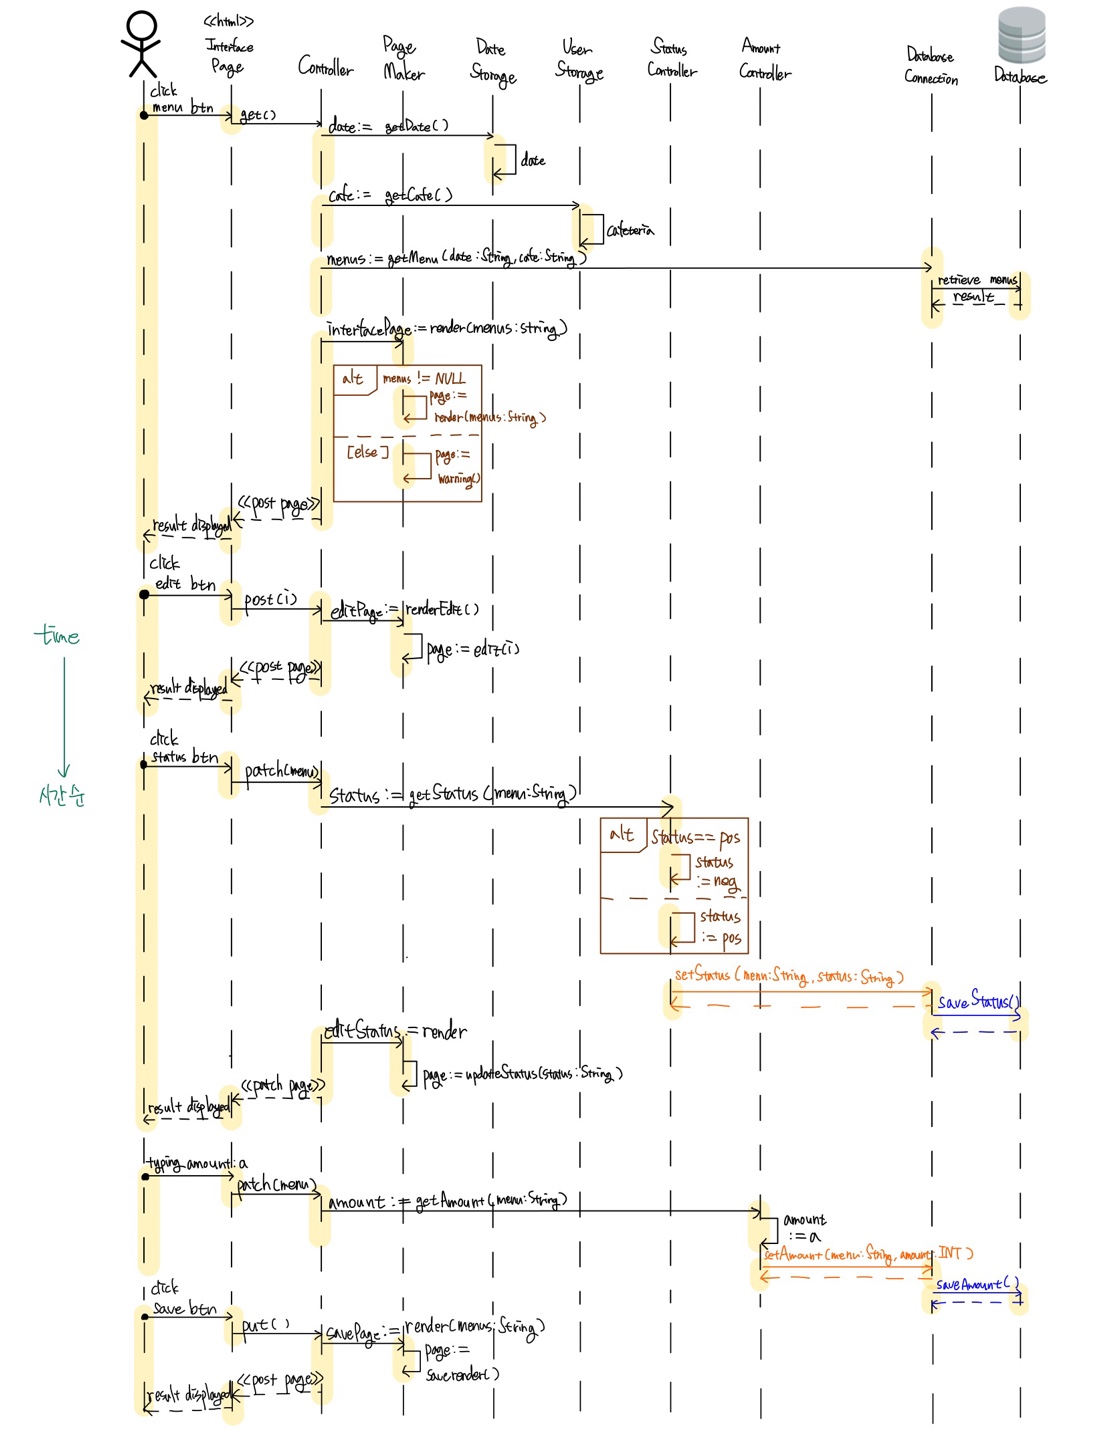 <<html>>
Interface
Page
Controller
Page
Maker
Date
Storage
User
Storage
Status
Controller
Amount
Controller
Database
Connection
Database
click
menu btn
get()
date:= getDate()
date
cafe:= getCafe()
cafeteria
menus:= getMenu(date:String, cafe:String)
retrieve menus
result
interfacePage:= render(menus:string)
alt
menus != NULL
page:=
render(menus:String)
[else]
page:=
warning()
<<post page>>
result displayed
click
edit btn
post(i)
editPage:= renderEdit()
page:= edit(i)
<<post page>>
result displayed
time
시간순
click
status btn
patch(menu)
status:= getStatus(menu:String)
alt
status== pos
status
:= neg
status
:= pos
setStatus(menu:String, status:String)
saveStatus()
editStatus = render
page:= updateStatus(status:String)
<<patch page>>
result displayed
typing amount:a
patch(menu)
amount:= getAmount(menu:String)
amount
:= a
setAmount(menu:String, amount:INT)
saveAmount()
click
save btn
put()
savePage:= render(menus:String)
page:=
saverender()
<<post page>>
result displayed